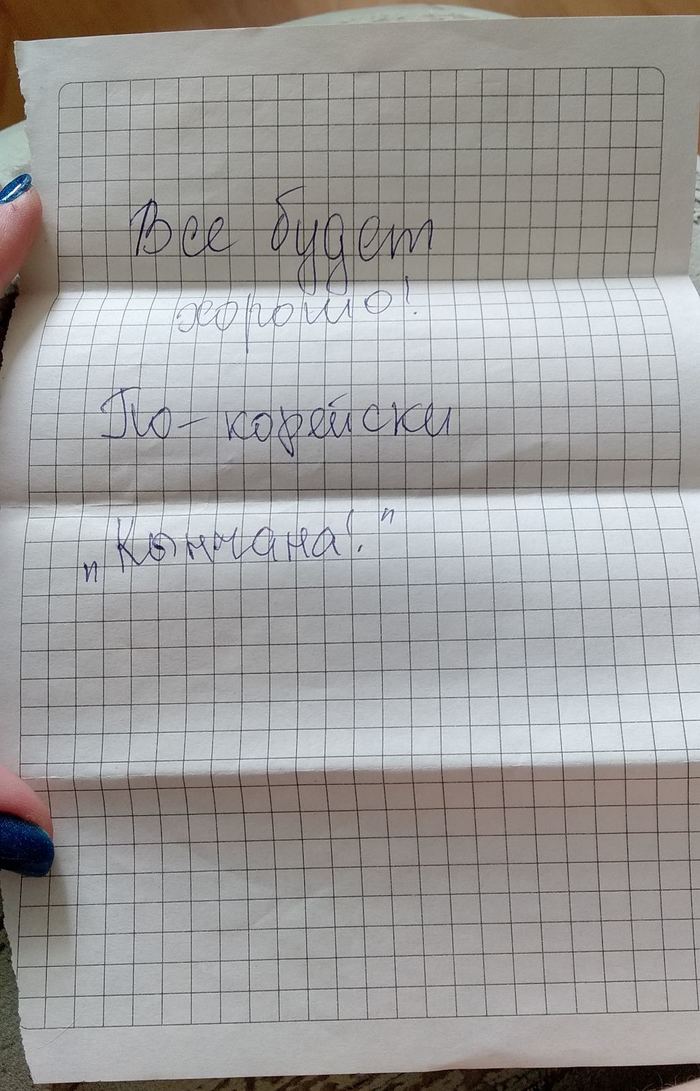 Все будет
хорошо!
По-корейски
„Кынчана!"